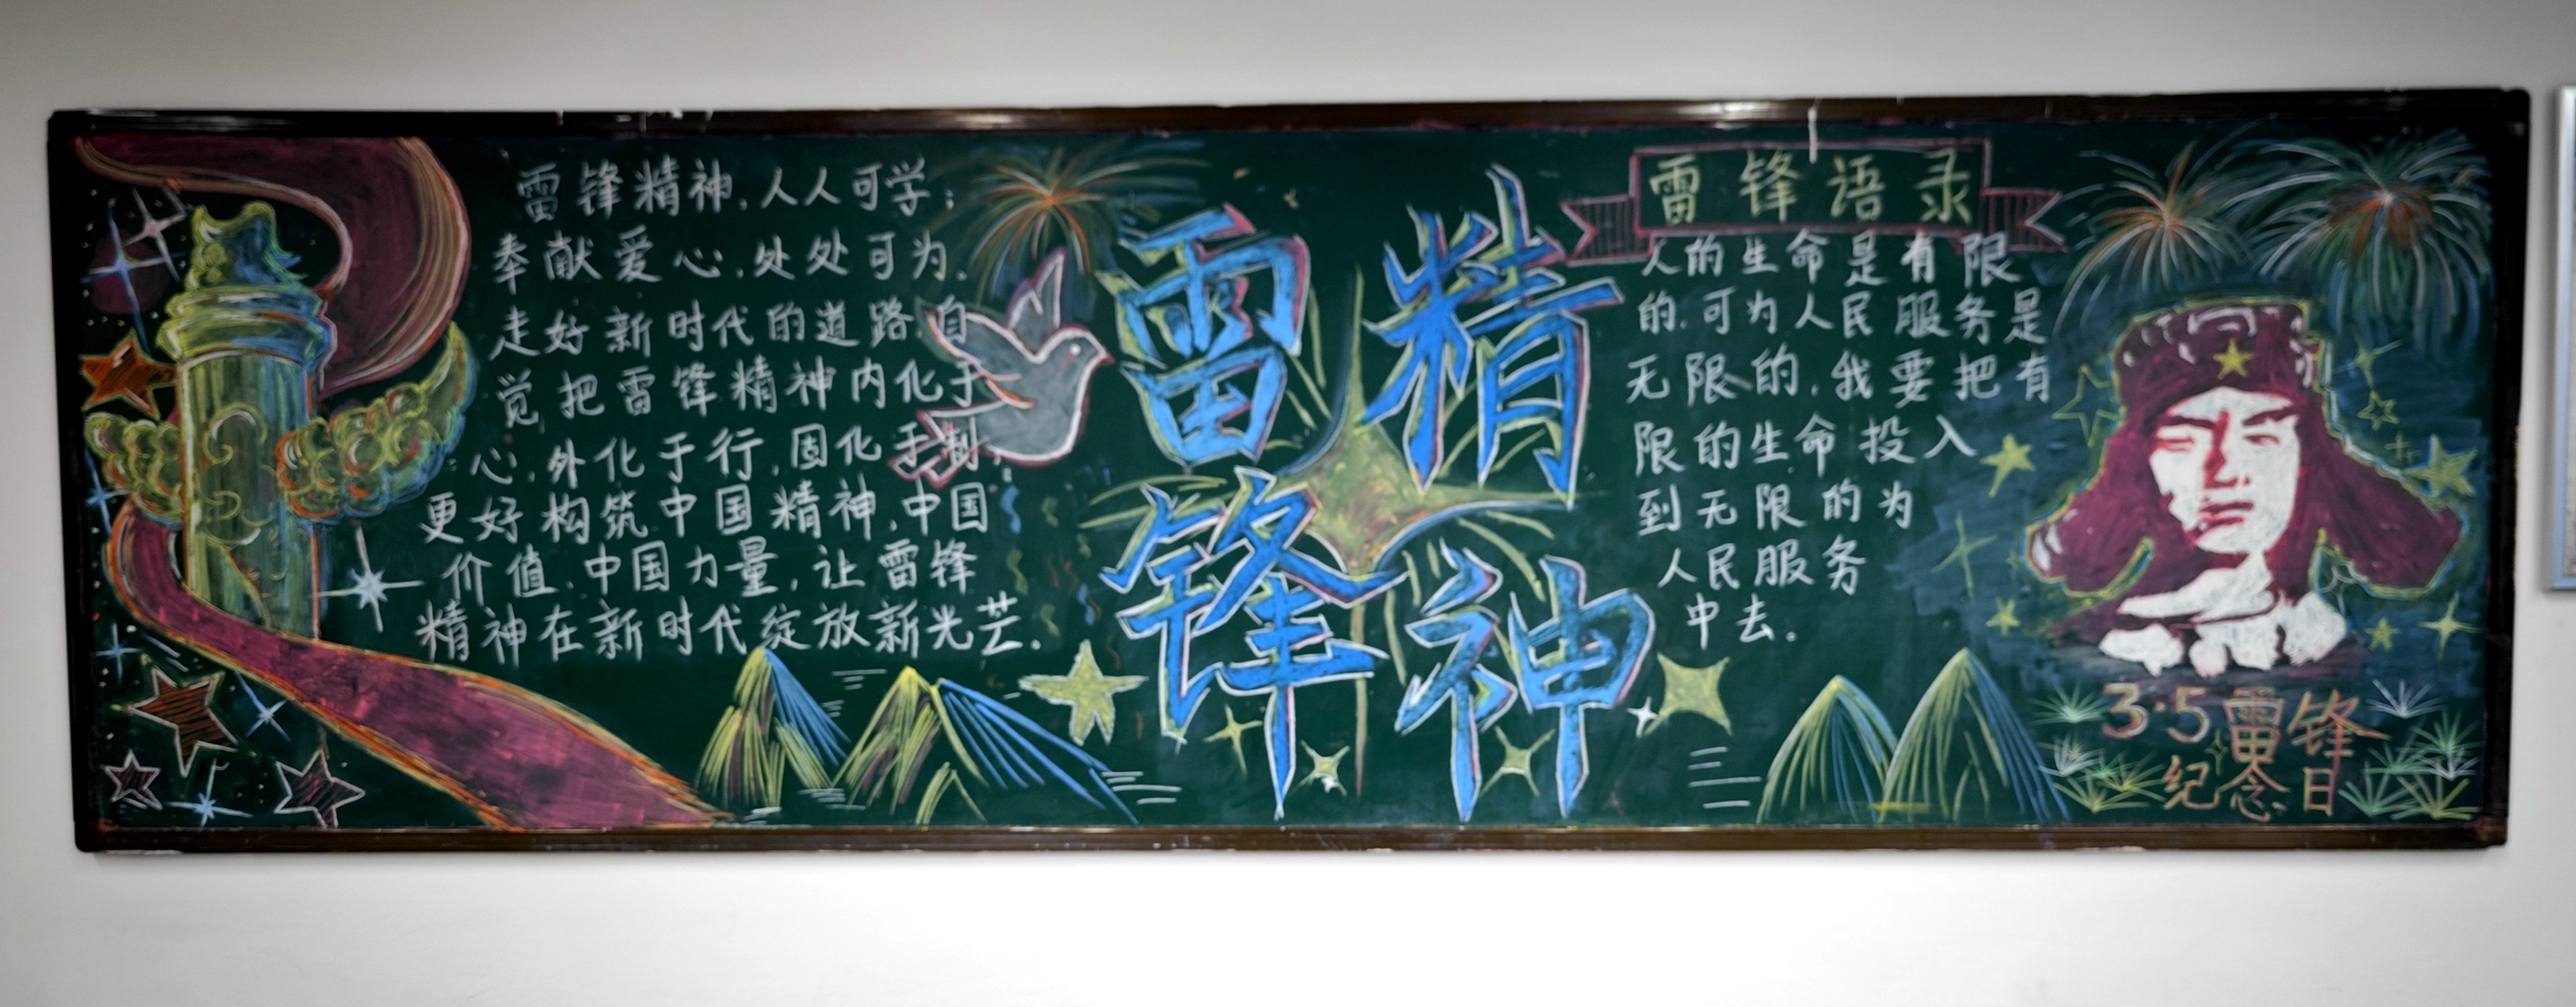 雷锋精神,人人可学;
奉献爱心,处处可为.
走好新时代的道路,自
觉把雷锋精神内化于
心,外化于行,固化于制,
更好构筑中国精神,中国
价值,中国力量,让雷锋
精神在新时代绽放新光芒.
雷锋
精神
雷锋语录
人的生命是有限
的,可为人民服务是
无限的,我要把有
限的生命投入
到无限的为
人民服务
中去.
3·5雷锋
纪念日